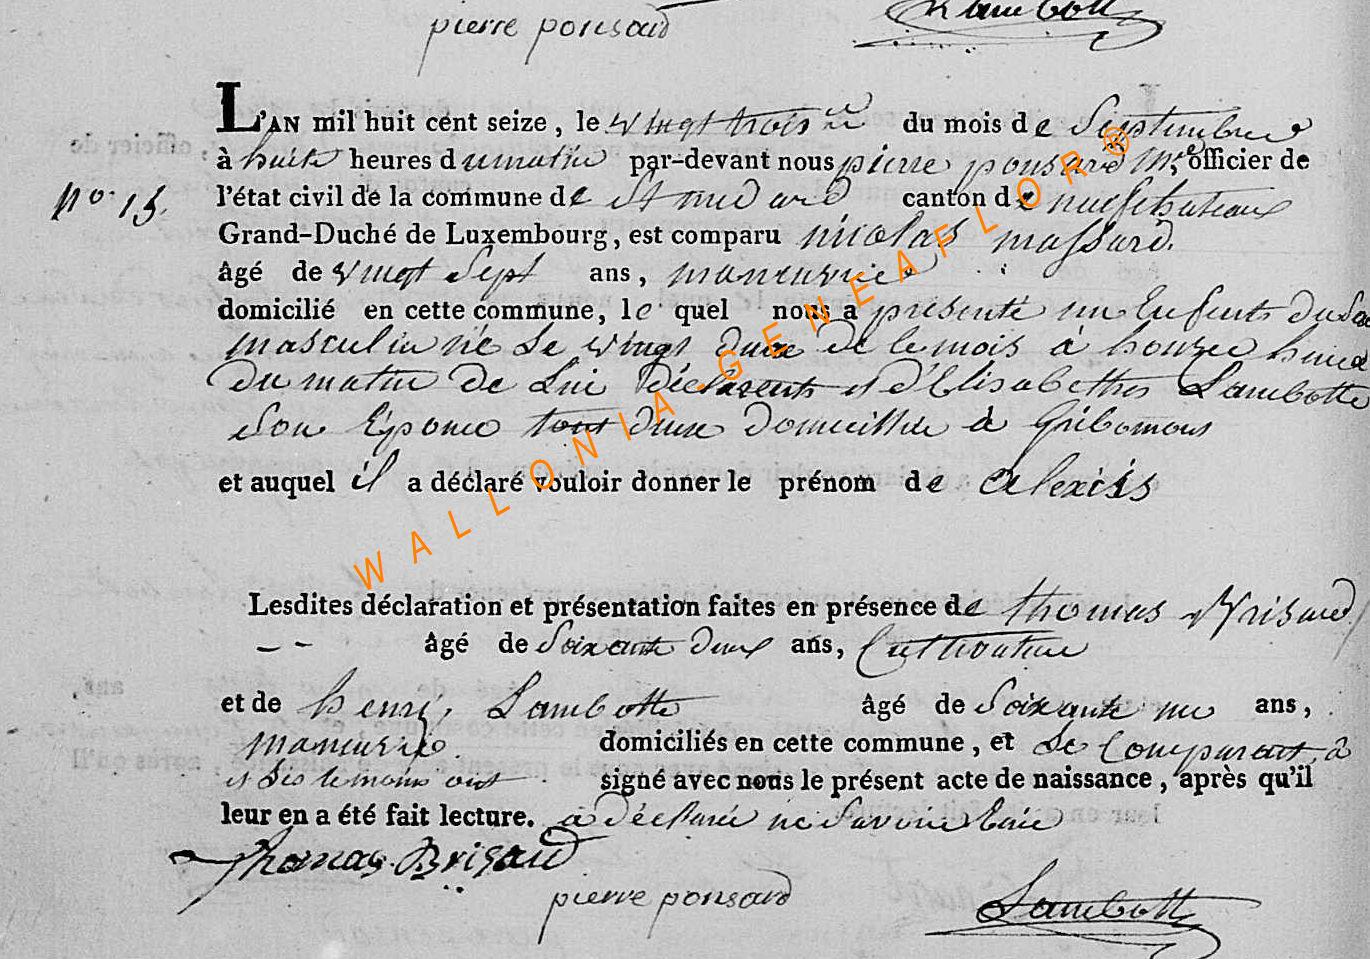 pierre ponsard Lambotte
L'AN mil huit cent seize, le vingt trois du mois de Septembre
à huit heures du matin par-devant nous pierre ponsard officier de
no. 15. l'état civil de la commune de St medard canton de neufchateaux
Grand-Duché de Luxembourg, est comparu nicolas massard.
âgé de vingt Sept ans, maneuvre
domicilié en cette commune, le quel nous a présenté un Enfent du
masculin né Le vingt deux de le mois à honze heures
du matin de Lui déclarent et d'Elisabethes Lambotte
Son Epouse tous deux domicillier à Gribomont
et auquel il a déclaré vouloir donner le prénom de alexis
WALLONIA GENEAFLOR®
Lesdites déclaration et présentation faites en présence de thomas Brisard
-- âgé de Soixante deux ans, Cultivateur
et de henry Lambotte âgé de Soixante un ans,
maneuvre. domiciliés en cette commune, et Le Comparant à
et Les temoin ont signé avec nous le présent acte de naissance, après qu'il
leur en a été fait lecture. a déclaré ne Savoir
Thomas Brisard
pierre ponsard Lambotte